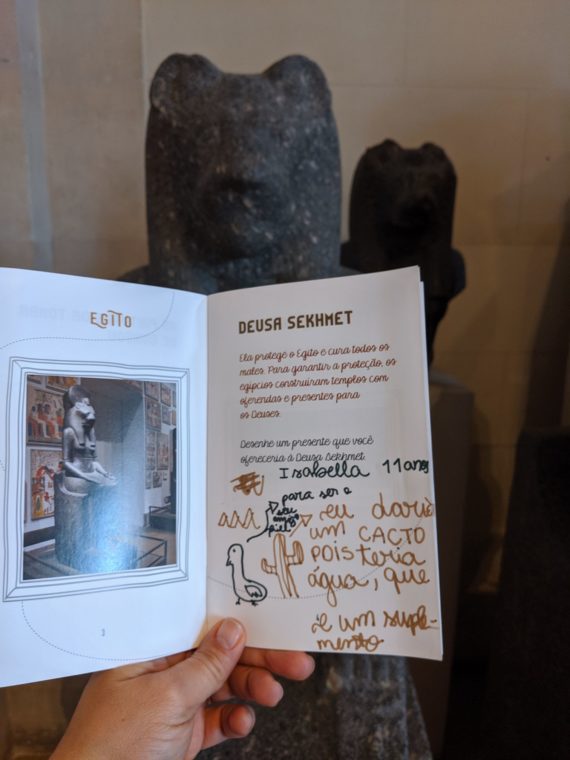 EGITO
3
DEUSA SEKHMET
Ela protege o Egito e cura todos os
males. Para garantir a proteção, os
egípcios construíram templos com
oferendas e presentes para
os Deuses.
Desenhe um presente que você
ofereceria à Deusa Sekhmet.
Isabella 11 anos
para ser o
seu
amigo
eu daria
um CACTO
POIS teria
água, que
é um suple-
mento